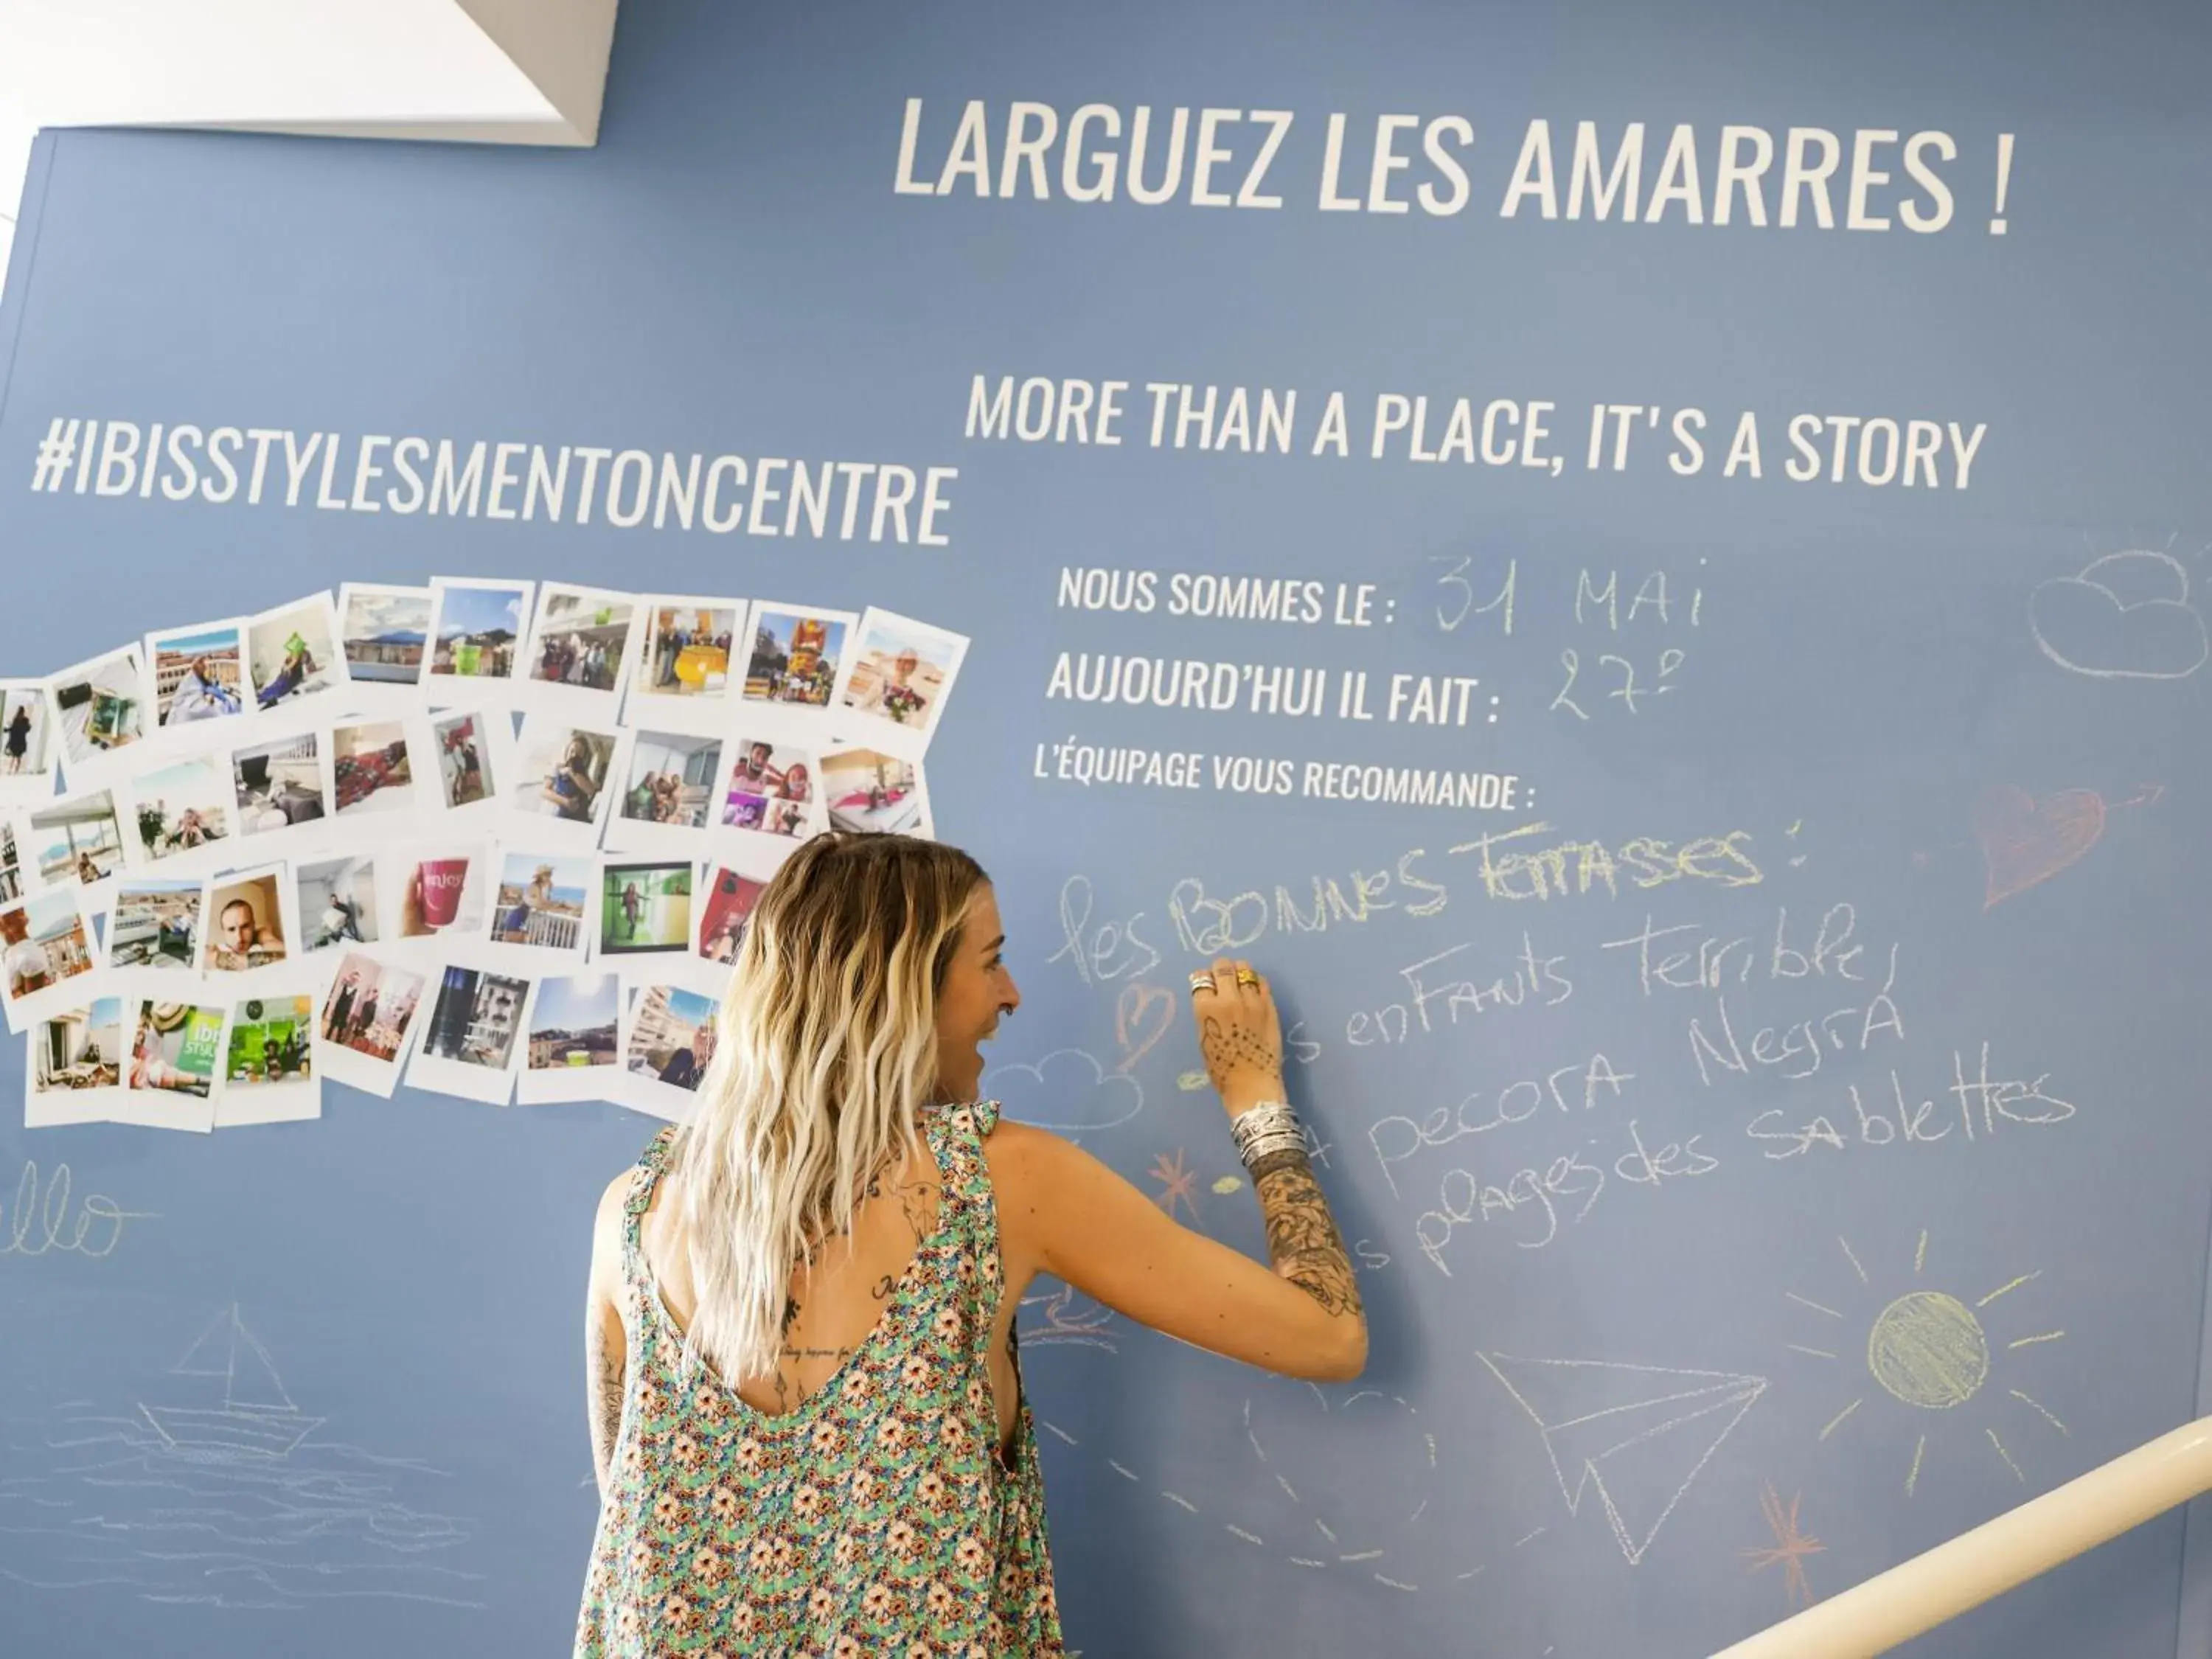 LARGUEZ LES AMARRES !
MORE THAN A PLACE, IT'S A STORY
#IBISSTYLESMENTONCENTRE
NOUS SOMMES LE : 31 MAi
AUJOURD'HUI IL FAIT : 27°
L'ÉQUIPAGE VOUS RECOMMANDE :
les BONNES TerrASSES :
enFANTS Terrible,
pecorA NegrA
plAges des SAblettes
enjoy
ibis